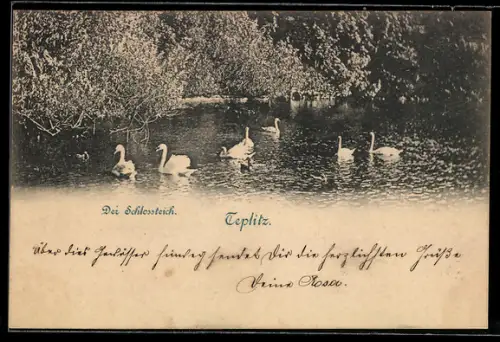 Der Schlossteich.
Teplitz.
Über dies Gewässer hinweg sendet Dir die herzlichsten Grüße
Deine Rosa.